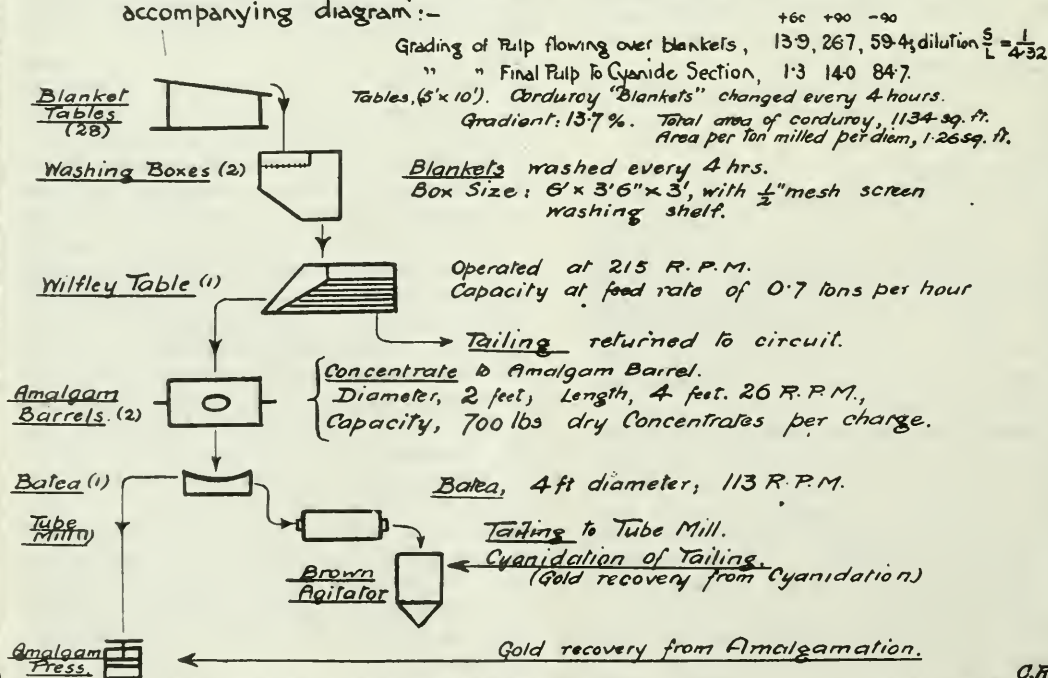 accompanying diagram:-
+60 +90 -90
Grading of Pulp flowing over blankets, 13·9, 26·7, 59·4; dilution S/L = 1/4·32
" " Final Pulp to Cyanide Section, 1·3 14·0 84·7.
Blanket Tables (28)
Tables, (5' x 10'). Corduroy "Blankets" changed every 4 hours.
Gradient: 13·7%. Total area of corduroy, 1134 sq. ft.
Area per ton milled per diem, 1·26 sq. ft.
Washing Boxes (2)
Blankets washed every 4 hrs.
Box Size: 6' x 3'6" x 3', with 1/2" mesh screen
washing shelf.
Wilfley Table (1)
Operated at 215 R.P.M.
Capacity at feed rate of 0·7 tons per hour
Tailing returned to circuit.
Amalgam
Barrels. (2)
Concentrate to Amalgam Barrel.
Diameter, 2 feet; Length, 4 feet. 26 R.P.M.,
Capacity, 700 lbs dry Concentrates per charge.
Batea (1)
Batea, 4 ft diameter; 113 R.P.M.
Tube
Mill (1)
Tailing to Tube Mill.
Brown
Agitator
Cyanidation of Tailing.
(Gold recovery from Cyanidation)
Amalgam
Press.
Gold recovery from Amalgamation.